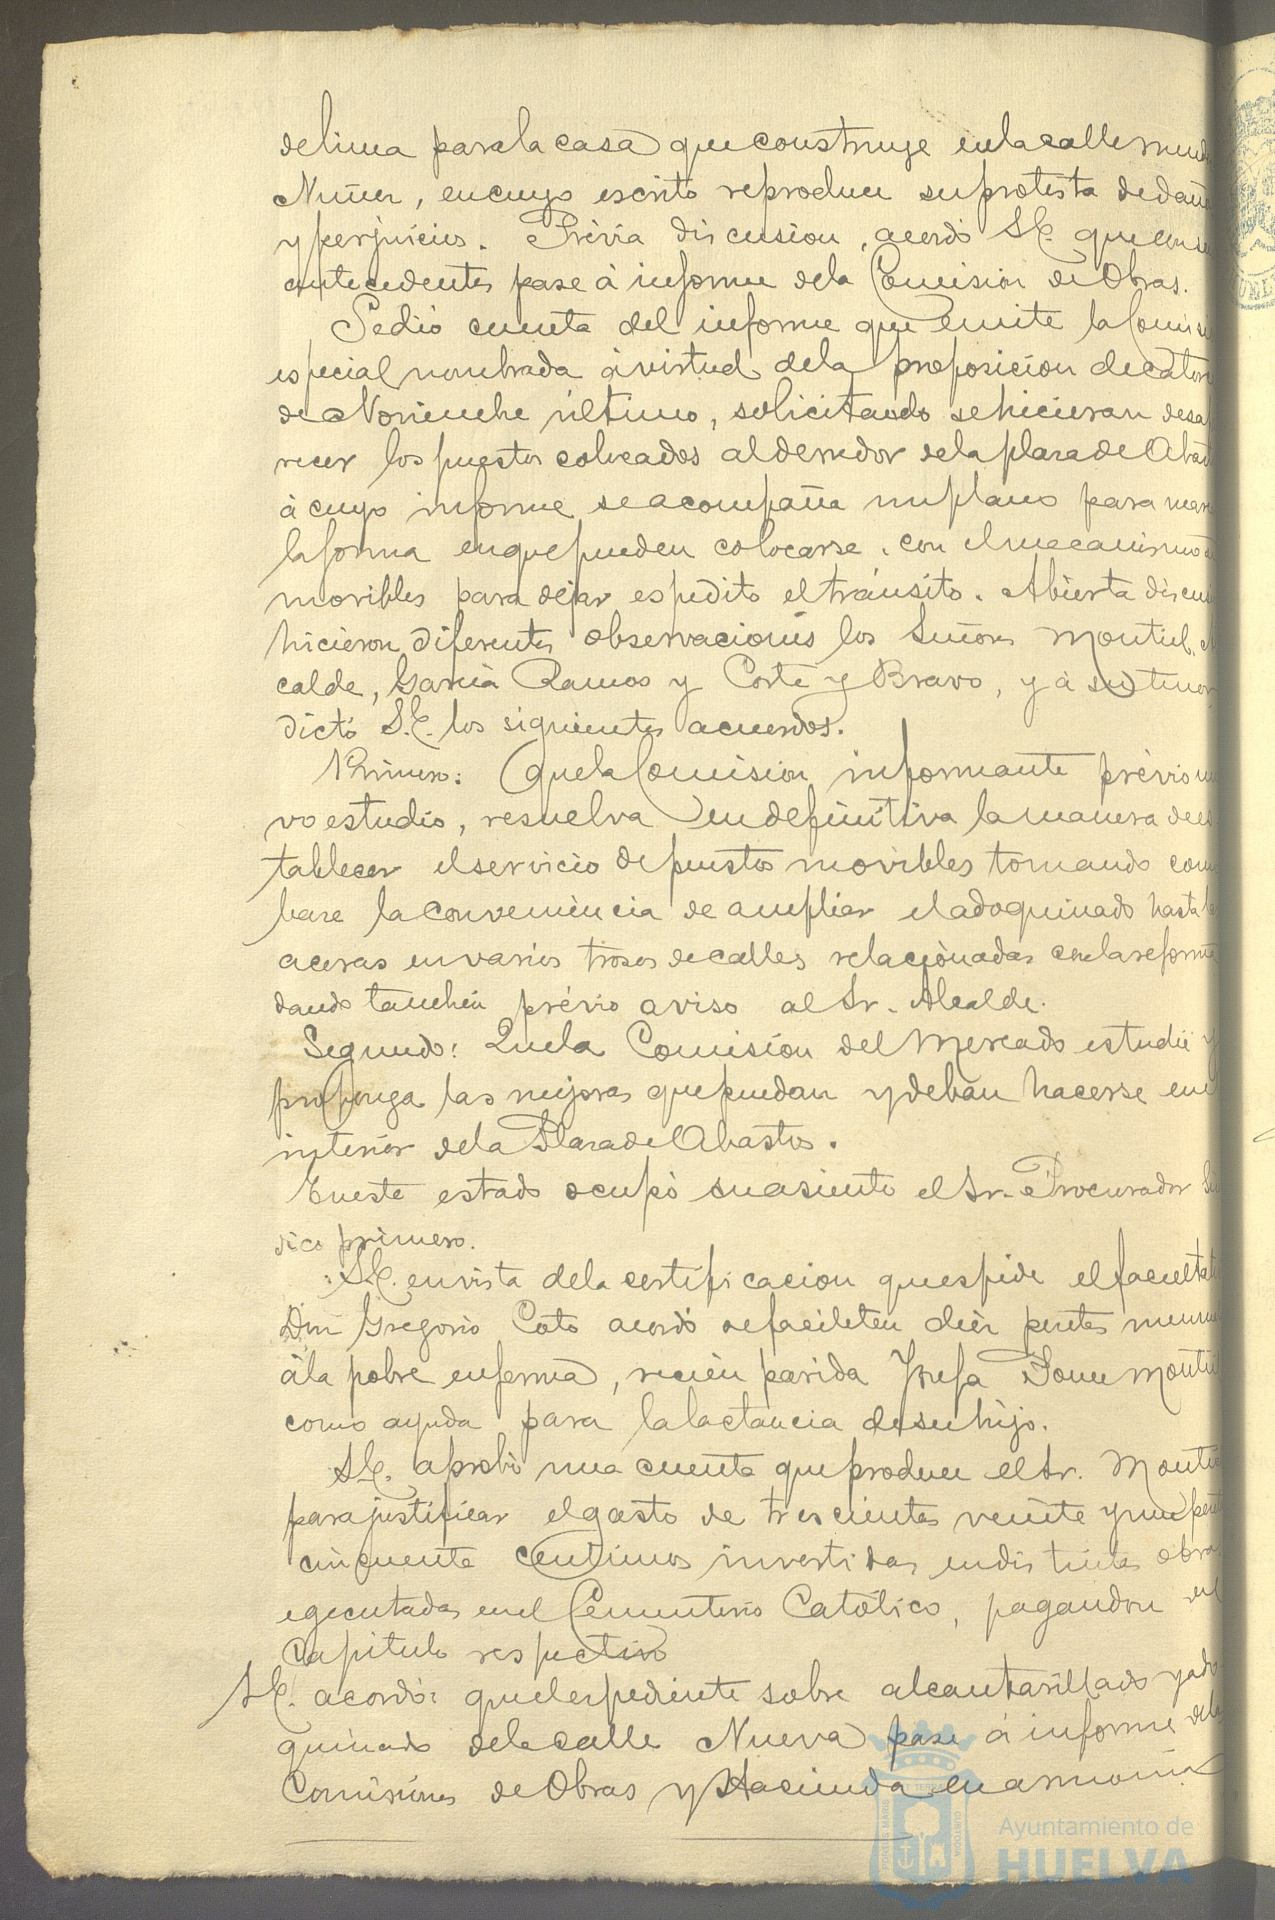 de linea para la casa que construye en la calle
Nuñez, en cuyo escrito reproduce su protesta de
y perjuicios. Prévia discusion, acordó S.E. que
antecedentes pase á informe de la Comision de Obras.
Se dió cuenta del informe que emite la
especial nombrada á virtud de la proposicion de
de Noviembre último, solicitando se hicieran
recer los puestos colocados alderredor de la plaza de
á cuyo informe se acompaña un plano para
la forma en que pueden colocarse, con el mecanismo
movibles para dejar espedito el tránsito. Abierta
hicieron diferentes observaciones los Señores Montiel,
calde, Garcia Ramos y Corte y Bravo, y á su tenor
dictó S.E. los siguientes acuerdos.
Primero: Que la Comision informante prévio
vo estudio, resuelva en definitiva la manera de es
tablecer el servicio de puestos movibles tomando
base la conveniencia de ampliar el adoquinado hasta
aceras en varios trosos de calles relacionadas con la reforma
dando tambien prévio aviso al Sr. Alcalde.
Segundo: Que la Comision del Mercado estudie y
proponga las mejoras que puedan y deban hacerse en el
interior de la Plaza de Abastos.
En este estado ocupó su asiento el Sr. Procurador
dico primero.
S.E. en vista de la certificacion que espide el
Don Gregorio Coto acordó se faciliten diez
á la pobre enferma, recien parida Josefa
como ayuda para la lactancia de su hijo.
S.E. aprobó una cuenta que produce el Sr.
para justificar el gasto de trescientas veinte y una
cincuenta centimos invertidas en distintas
egecutadas en el Cementerio Católico, en el
Capitulo respectivo
S.E. acordó: que el espediente sobre alcantarillado y ado
quinado de la calle Nueva pase á informe de las
Comisiones de Obras y Hacienda en armonía
Ayuntamiento de
HUELVA